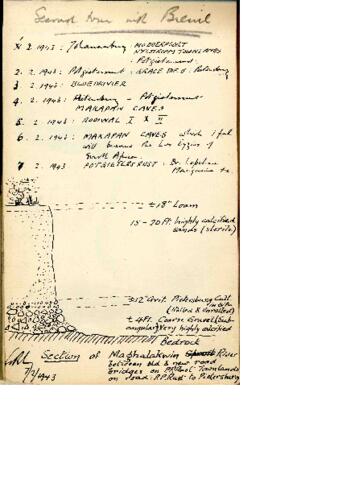 Second tour with Breuil
1. 2. 1943: Johannesburg: MODDERPOORT
NYLSTROOM TOWNLANDS
: Potgietersrust.
2. 2. 1943: Potgietersrust: GRACE DIEU: Pietersburg
3 2. 1943: BLOEDRIVIER
4. 2. 1943: Pietersburg - Potgietersrust
MAKAPAN CAVES
5. 2. 1943: ROOIWAL I X II
6. 2. 1943: MAKAPAN CAVES which I feel
will become the Les Eyzies of
South Africa.
7 2. 1943 POTGIETERSRUST: Dr.
±18" Loam
15-20 Ft. highly calcified
sands (sterile)
±12" Grit. Pietersburg Cult.
in situ
(Rolled & Unrolled)
±4 Ft. Coarse Gravel (Sub
angular) Very highly calcified
Bedrock
Section of Maghalakwin River
between old & new road
bridges on Townlands
on road: P.P. Rust to Pietersburg
7/2/1943